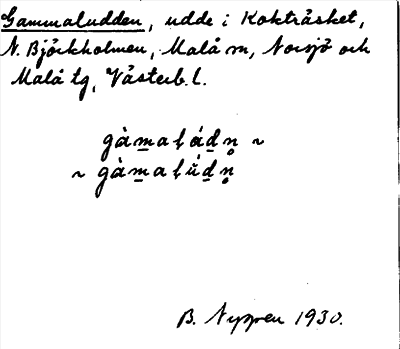 Gammaludden, udde i Kokträsket,
N. Björkholmen, Malå sn, Norsjö och
Malå tg, Västerb. l.
gàm̲aḷúd̲n̥ ~
~ gàm̲aḷǘd̲n̥
B. Nygren 1930.